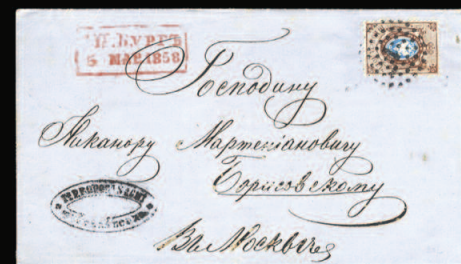 С.П.БУРГЪ
5 МАР. 1858
Господину
Никанору Мартиніановичу
Борисовскому
Въ Москвѣ